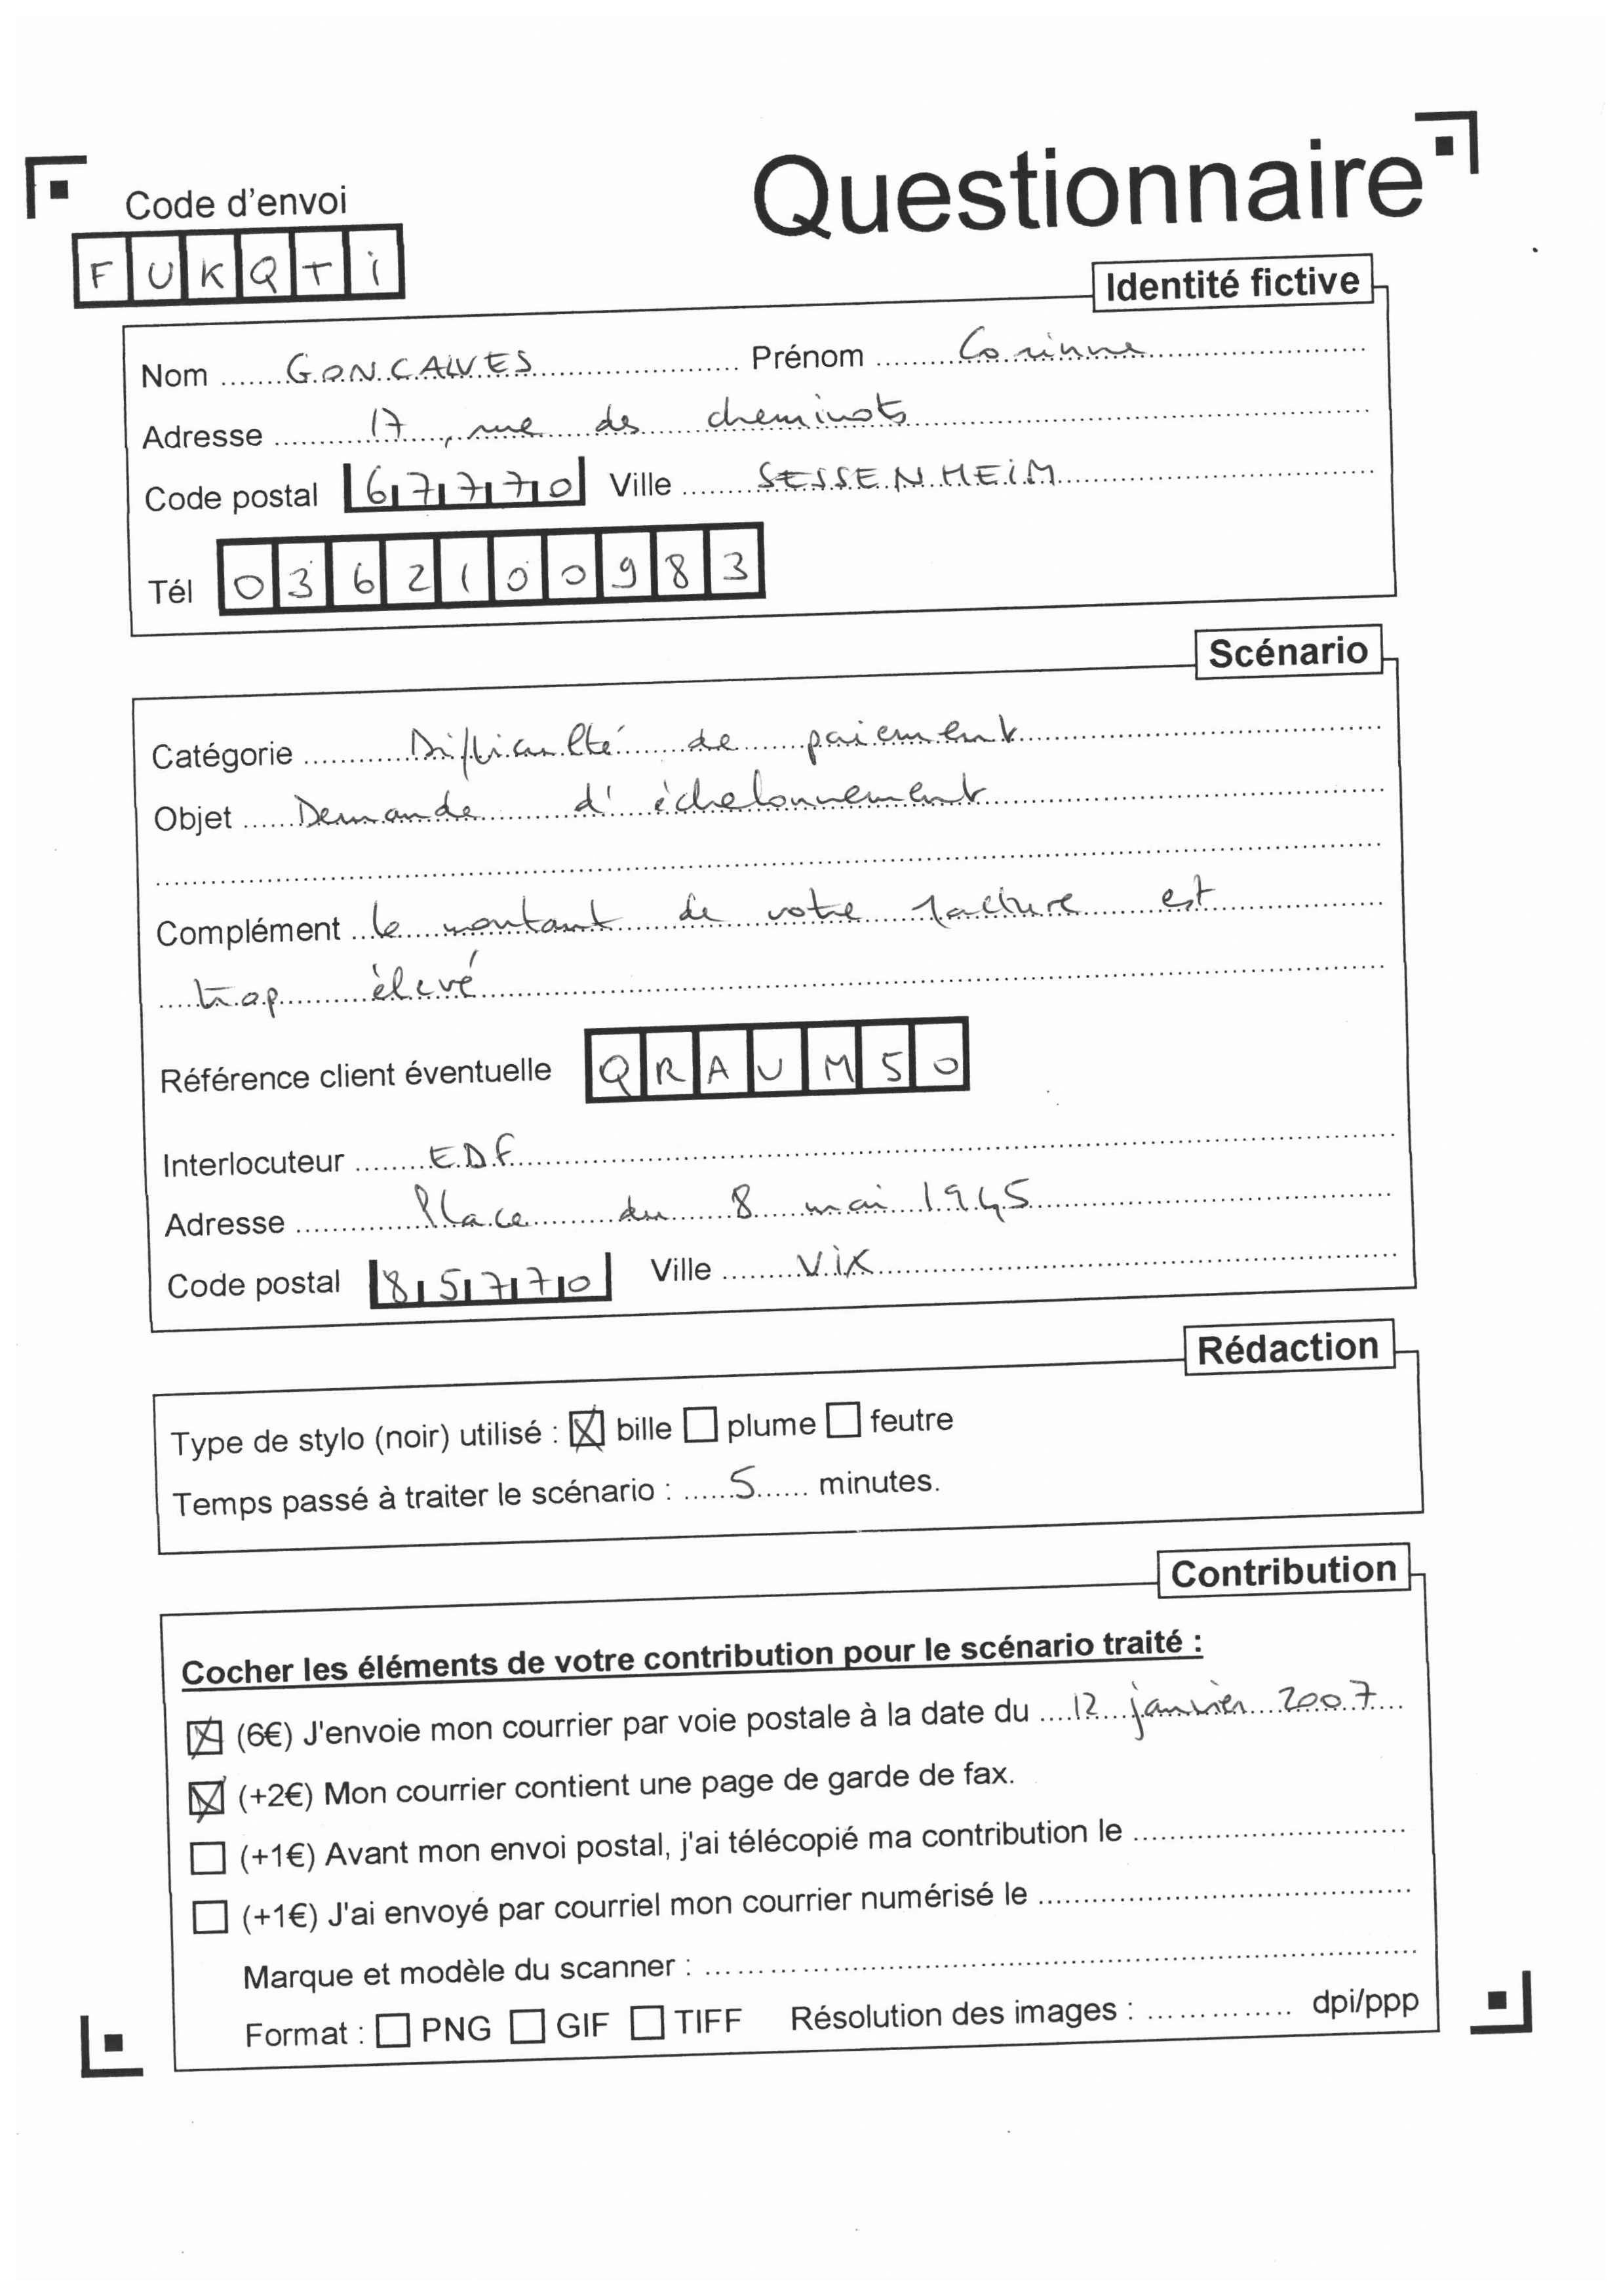 Questionnaire
Code d'envoi
FUKQTi
Identité fictive
Nom ....... GONCALVES ....... Prénom ....... Corinne .......
Adresse ....... 17, rue des cheminots .......
Code postal 67770 Ville ....... SESSENHEiM .......
Tél 0362100983
Scénario
Catégorie ....... Difficulté de paiement .......
Objet ....... Demande d'échelonnement .......
Complément ... le montant de votre facture est
trop élevé
Référence client éventuelle QRAUM50
Interlocuteur ....... EDF .......
Adresse ....... Place du 8 mai 1945 .......
Code postal 85770 Ville ....... ViX .......
Rédaction
Type de stylo (noir) utilisé : ☒ bille ☐ plume ☐ feutre
Temps passé à traiter le scénario : ...... 5 ...... minutes.
Contribution
Cocher les éléments de votre contribution pour le scénario traité :
☒ (6€) J'envoie mon courrier par voie postale à la date du .... 12 janvier 2007 ...
☒ (+2€) Mon courrier contient une page de garde de fax.
☐ (+1€) Avant mon envoi postal, j'ai télécopié ma contribution le .......
☐ (+1€) J'ai envoyé par courriel mon courrier numérisé le .......
Marque et modèle du scanner : .......
Format : ☐ PNG ☐ GIF ☐ TIFF Résolution des images : ....... dpi/ppp